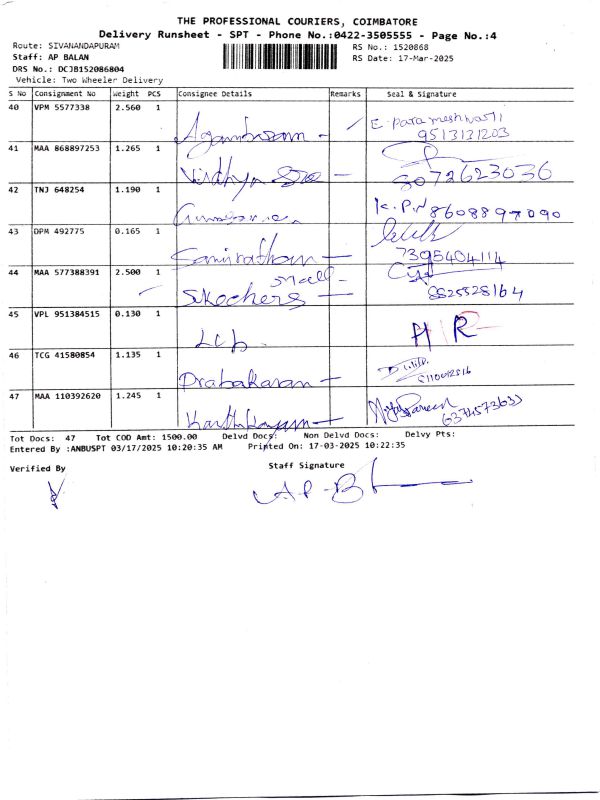 THE PROFESSIONAL COURIERS, COIMBATORE
Delivery Runsheet - SPT - Phone No.:0422-3505555 - Page No.:4
Route: SIVANANDAPURAM RS No.: 1520868
Staff: AP BALAN RS Date: 17-Mar-2025
DRS No.: DCJB152086804
Vehicle: Two Wheeler Delivery
S No Consignment No Weight PCS Consignee Details Remarks Seal & Signature
40 VPM 5577338 2.560 1 E. Parameshwari
9513131203
41 MAA 868897253 1.265 1 Vidhya
8072623036
42 TNJ 648254 1.190 1 K.P.N 8608897090
43 DPM 492775 0.165 1
7395404114
44 MAA 577388391 2.500 1 Skechers
45 VPL 951384515 0.130 1 H R
46 TCG 41580854 1.135 1 Prabakaran
47 MAA 110392620 1.245 1
Tot Docs: 47 Tot COD Amt: 1500.00 Delvd Docs: Non Delvd Docs: Delvy Pts:
Entered By :ANBUSPT 03/17/2025 10:20:35 AM Printed On: 17-03-2025 10:22:35
Verified By Staff Signature
A.P-B